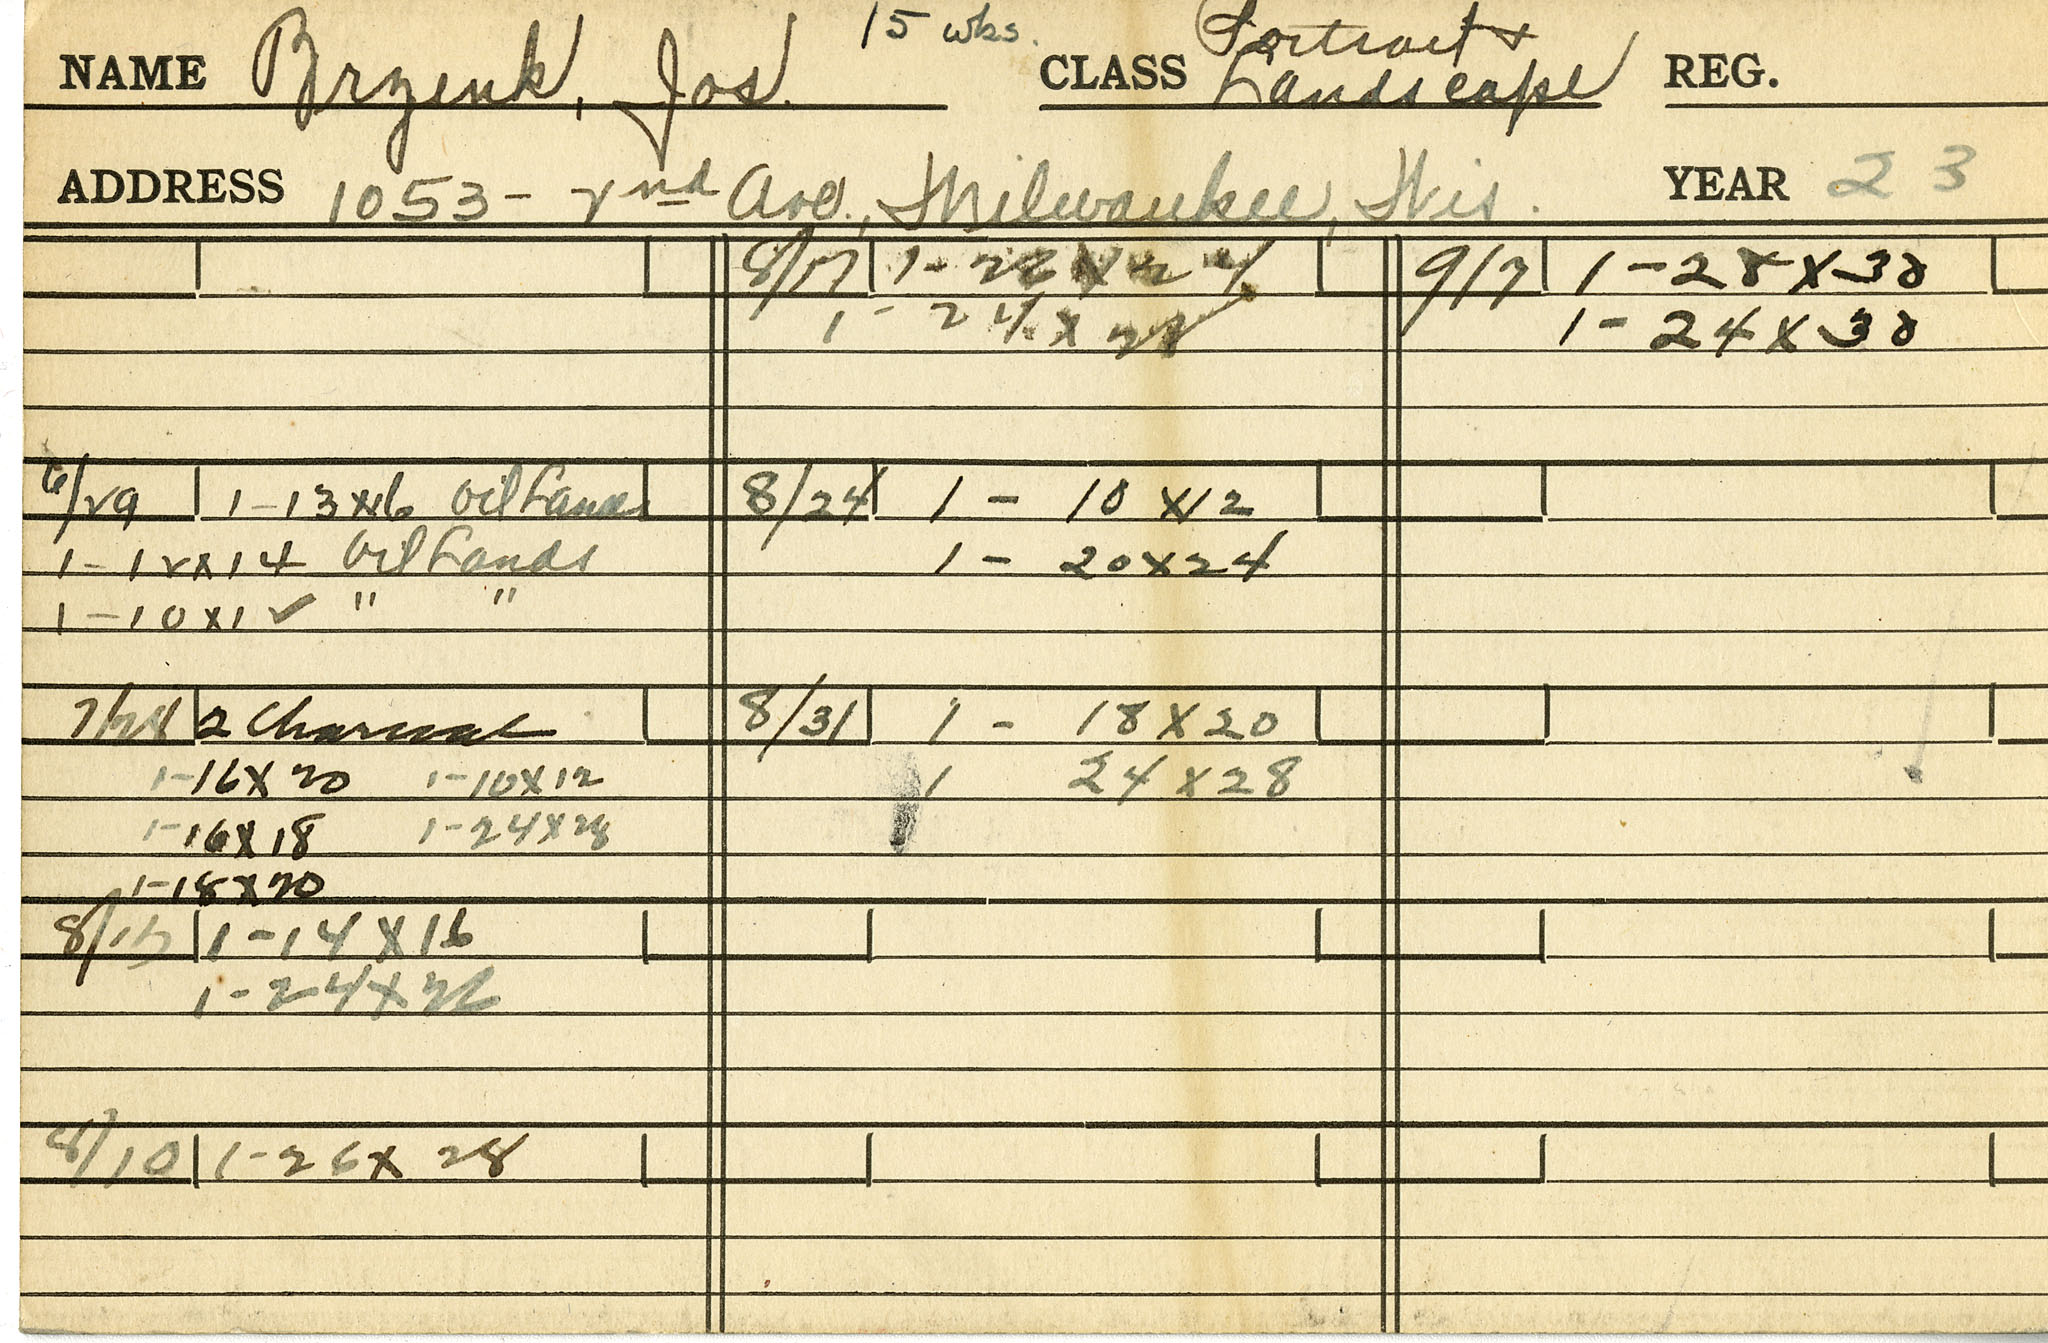 NAME Brzenk, Jos. 15 wks. CLASS Portrait & Landscape REG.
ADDRESS 1053 - 2nd Ave., Milwaukee, Wis. YEAR 23
6/29 1-13x16 Oil Lands
1-12x14 Oil Lands
1-10x12 " "
2 Charcoal
1-16x20 1-10x12
1-16x18 1-24x28
1-18x20
1-14x16
1-24x26
8/10 1-26x28
8/17 1-22x24
1-24x28
8/24 1 - 10x12
1 - 20x24
8/31 1 - 18x20
1 24x28
9/7 1-28x30
1-24x30